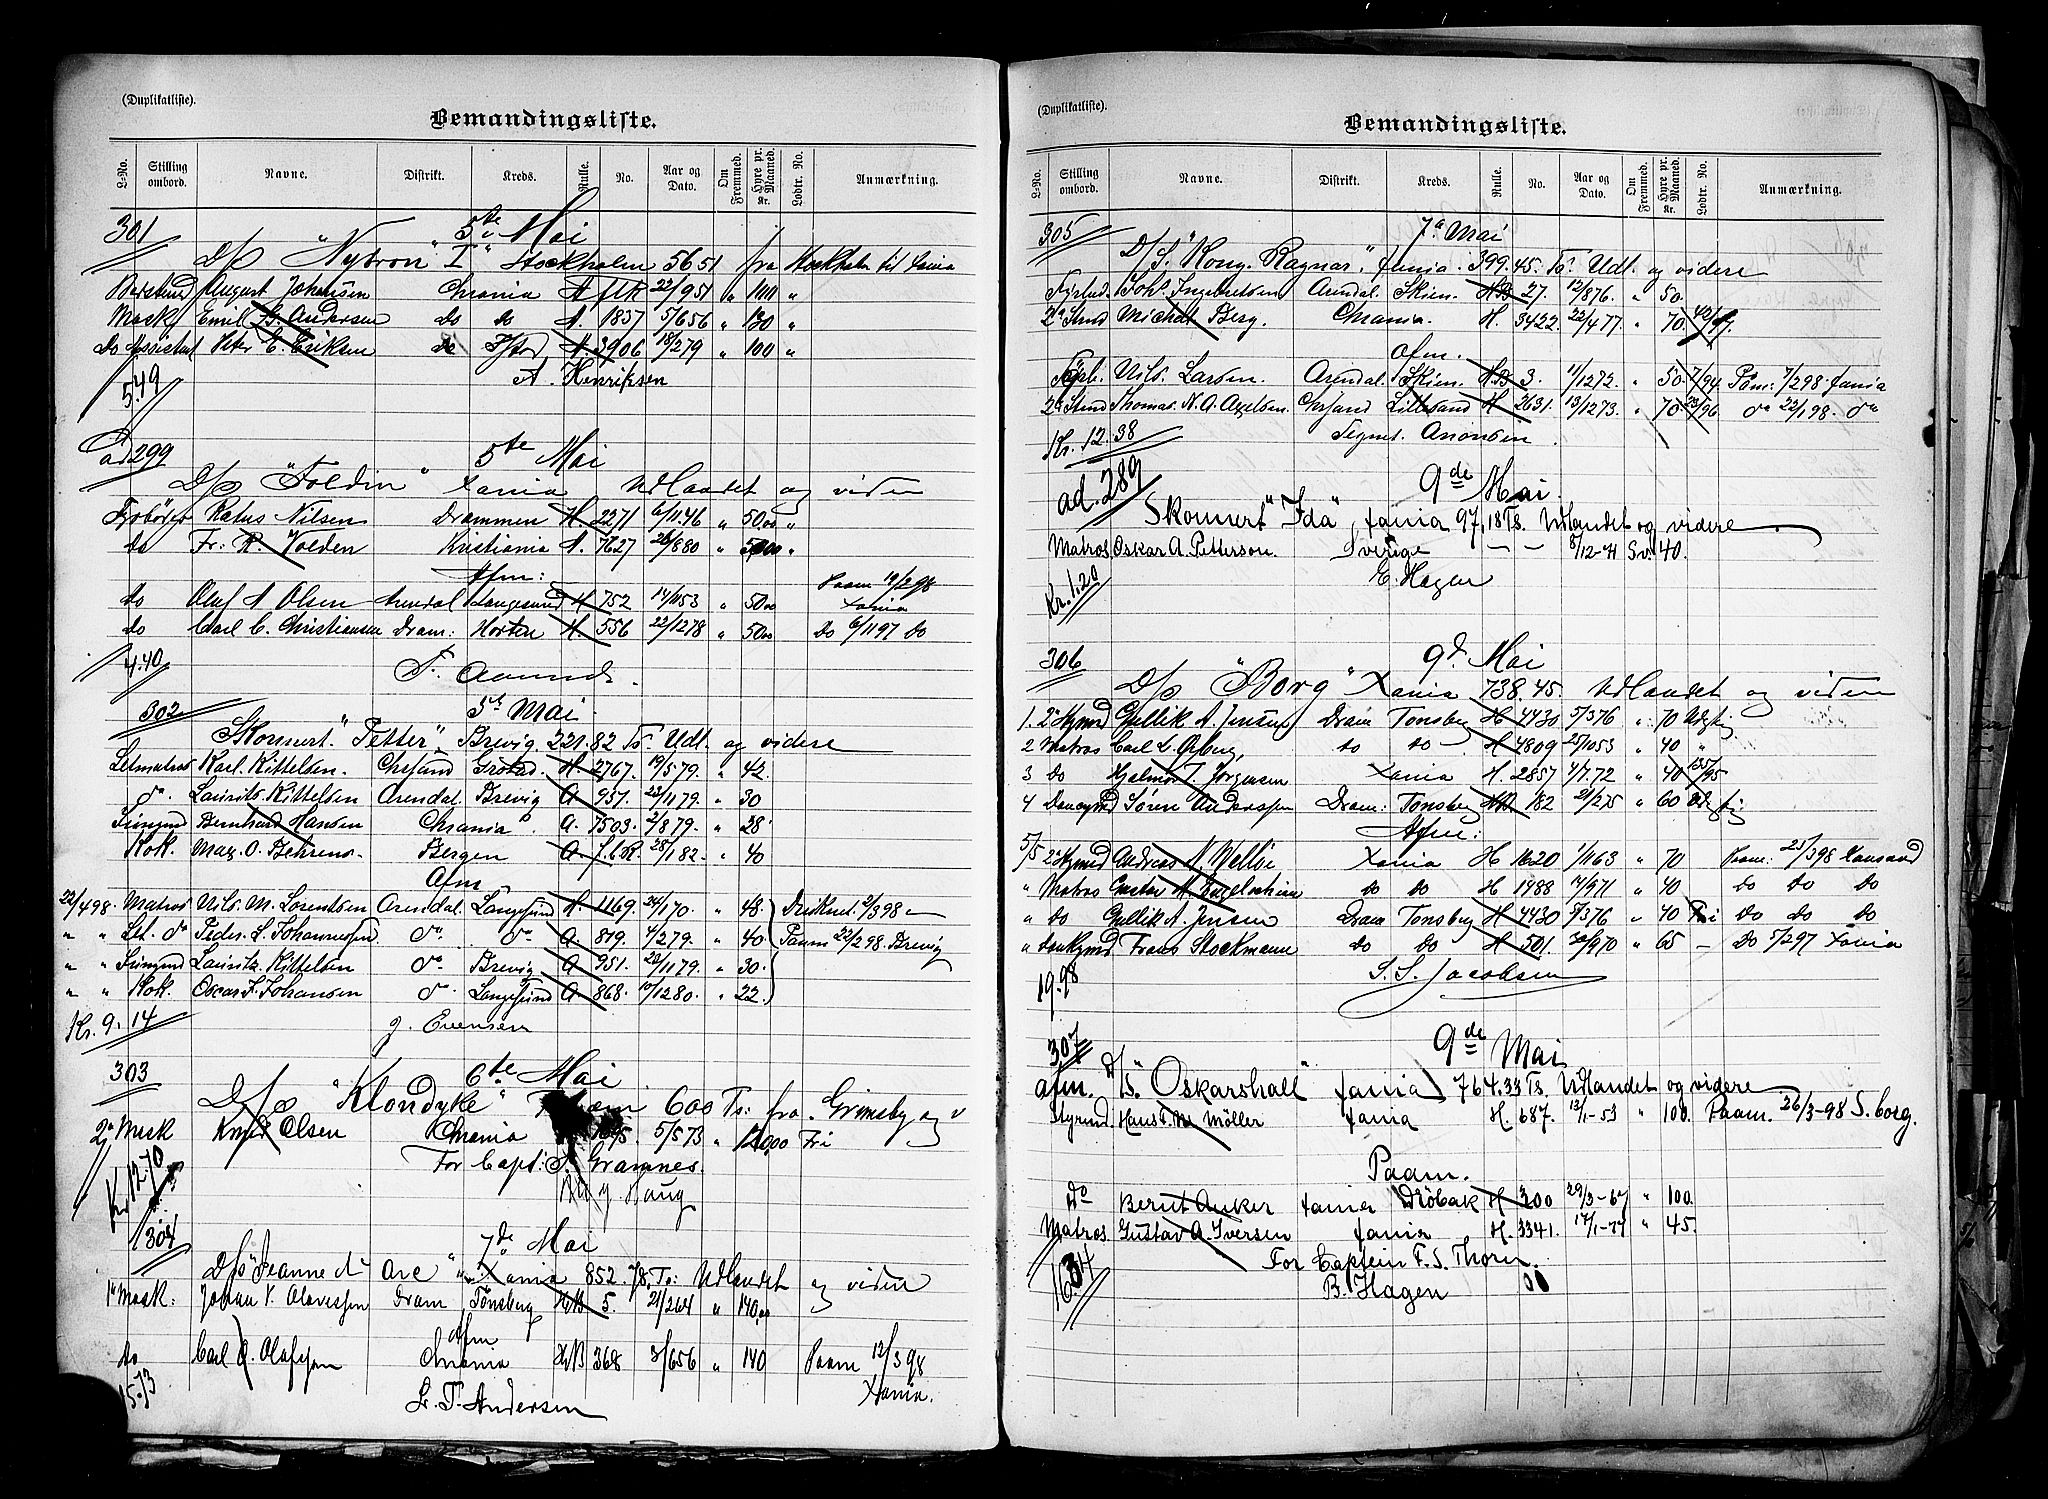 (Duplikatliste).
Bemandingsliste.
L-No. Stilling ombord. Navne. Distrikt. Kreds. Rulle. No. Aar og Dato. Om Fremmed. Hyre pr. Maaned. Kr. Lodtr. No. Anmærkning.
301 5te Mai
D/S "Nybron" I" Stockholm 5651 fra Stockholm til Xania
August Johansen Chrania A flk 22/951 " 100 "
Mask Emil B. Andersen do do A. 1837 5/656 " 130 "
do Assistent Peter E. Eriksen do A. 3906 18/279 " 100 "
5.49 A. Henriksen
ad 299 5te Mai
D/S "Foldin" Xania Udlandet og videre
Fyrbøder Ratus Nilsen Drammen H. 2271 6/1146 " 50.00 "
do Fr: R. Volden Kristiania A. 7627 26/880 " 50.00 "
Afm: Paam 19/298
do Oluf A Olsen Arendal Langesund H 752 14/1153 " 50.00 Xania
do Carl C. Christiansen Dram: Horten H. 556 22/1278 " 50.00 do 6/1197 do
4.40
302 5te Mai
Skonnert. "Petter", Brevig. 221.82 Ts. Udl. og videre
Letmatros Karl. Kittelsen. Chrsand H. 2767. 19/579. " 42.
do. Laurits. Kittelsen Arendal. Brevig A. 951. 23/1179. " 30
Bernhard Hansen Chrania A. 7503. 2/879. " 28.
Kok. Max. O. Behrens. Bergen A. f.b.R. 28/182. " 40
Afm
22/498. Matros Nils. M. Lorentsen Arendal. Langesund H. 1169. 24/170. " 48. 2/398
" " Let. do Peder. L. Johannessen do. do. A. 819. 4/279. " 40 Paam 22/298. Brevig
" " Lauritz. Kittelsen do. Brevig A 951. 23/1179. " 30.
" " Kok. Oscar F. Johansen do Langesund A 868. 10/1280. " 22.
Kr. 9.14 J. Evensen
303 6te Mai
D/S "Klondyke" 600 Ts: fra. Grimsby og v
2den Mask Olsen Chrania 5/573 " 120,00 Fri
Kr 12.70 For Capt: Gramnes.
Haug
304 7de Mai
D/S "Jeanne d' Arc" Xania 852. 78, Ts: Udlandet og videre
1ste Mask: Johan V. Olavessen Dram Tønsberg HB 5. 21/264 " 140,00
Afm
do Carl O. Olafsen Chrania HB 368 3/656 " 140 Paam 12/398
15.73 Xania.
L. T. Andersen
(Duplikatliste).
Bemandingsliste.
L-No. Stilling ombord. Navne. Distrikt. Kreds. Rulle. No. Aar og Dato. Om Fremmed. Hyre pr. Maaned. Kr. Lodtr. No. Anmærkning.
305 7de Mai
D/S. "Kong. Ragnar", Xania. 399.45. Ts. Udl. og videre
Joh. Ingebretsen Arendal. Skien. HB 27. 12/876. " 50.
2den Michal Berg. Chrania. H. 3422. 22/477. " 70.
Afm.
Fyrb. Nils. Larsen. Arendal. Skien. HB 3. 11/1272. " 50. 7/94. Paam: 7/298. Xania
2den Thomas. N. A. Axelsen. Chrsand Lillesand H 2631. 13/1273. " 70 23/96 do 22/198. do
Kr. 12.38 Anonsen
ad. 289 9de Mai.
Skonnert "Ida" Xania 97,18 Ts. Udlandet og videre
Matros. Oskar A. Petterson. Sverige — — 8/12-71 Sv. 40.
Kr. 1.20 E. Hagen
306 9de Mai
D/S "Borg" Xania 738.45. Udlandet og videre
1. Gullik A. Jensen Dram Tønsberg H 4430 5/376 " 70
2 Matros Carl L. do do H 4809 25/1053 " 40 "
3 do Hjalmar T. Jørgensen Xania H. 2857 4/7.72 " 40
4 Søren Anderssen Dram: Tonsberg HB 182 21/275 " 60
Afm:
5/5 Andreas N. Xania H 1620 1/1163 " 70 Paam: 25/398
" Matros Gustav A. do do H 1988 14/971 " 40 do do do
" do Gullik A. Jensen Dram Tonsberg H 4430 5/376 " 40 Fri do do do
" Frans Stockmann do do H 501. 30/970 " 65 — do 5/297 Xania
19.98 S. S. Jacobsen
307 9de Mai
afm. D/S. "Oskarshall" Xania 764.33 Ts. Udlandet og videre
Styrmd Hans F. M. Möller Xania H. 687. 12/1-53 " 100. Paam. 26/3-98 S. borg.
Paam.
do Bernt Anker Xania Dröbak H. 200 29/3-67 " 100.
Matros. Gustav A. Iversen Xania H. 3341. 17/1-77 " 45.
16.34 For Captein F. S. Thorn.
B. Hagen